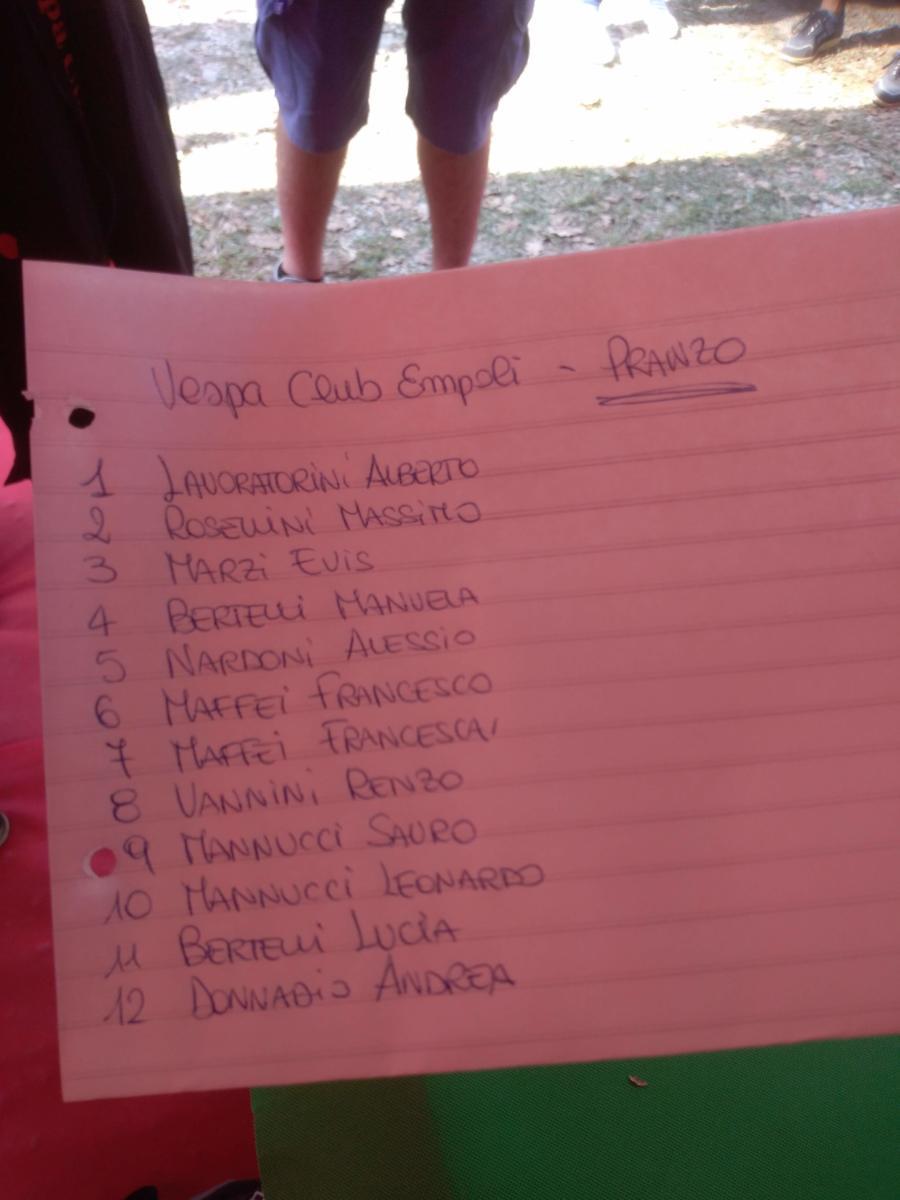 Vespa Club Empoli - PRANZO
1 LAVORATORINI ALBERTO
2 ROSELLINI MASSIMO
3 MARZI EVIS
4 BERTELLI MANUELA
5 NARDONI ALESSIO
6 MAFFEI FRANCESCO
7 MAFFEI FRANCESCA
8 VANNINI RENZO
9 MANNUCCI SAURO
10 MANNUCCI LEONARDO
11 BERTELLI LUCIA
12 DONNADIO ANDREA